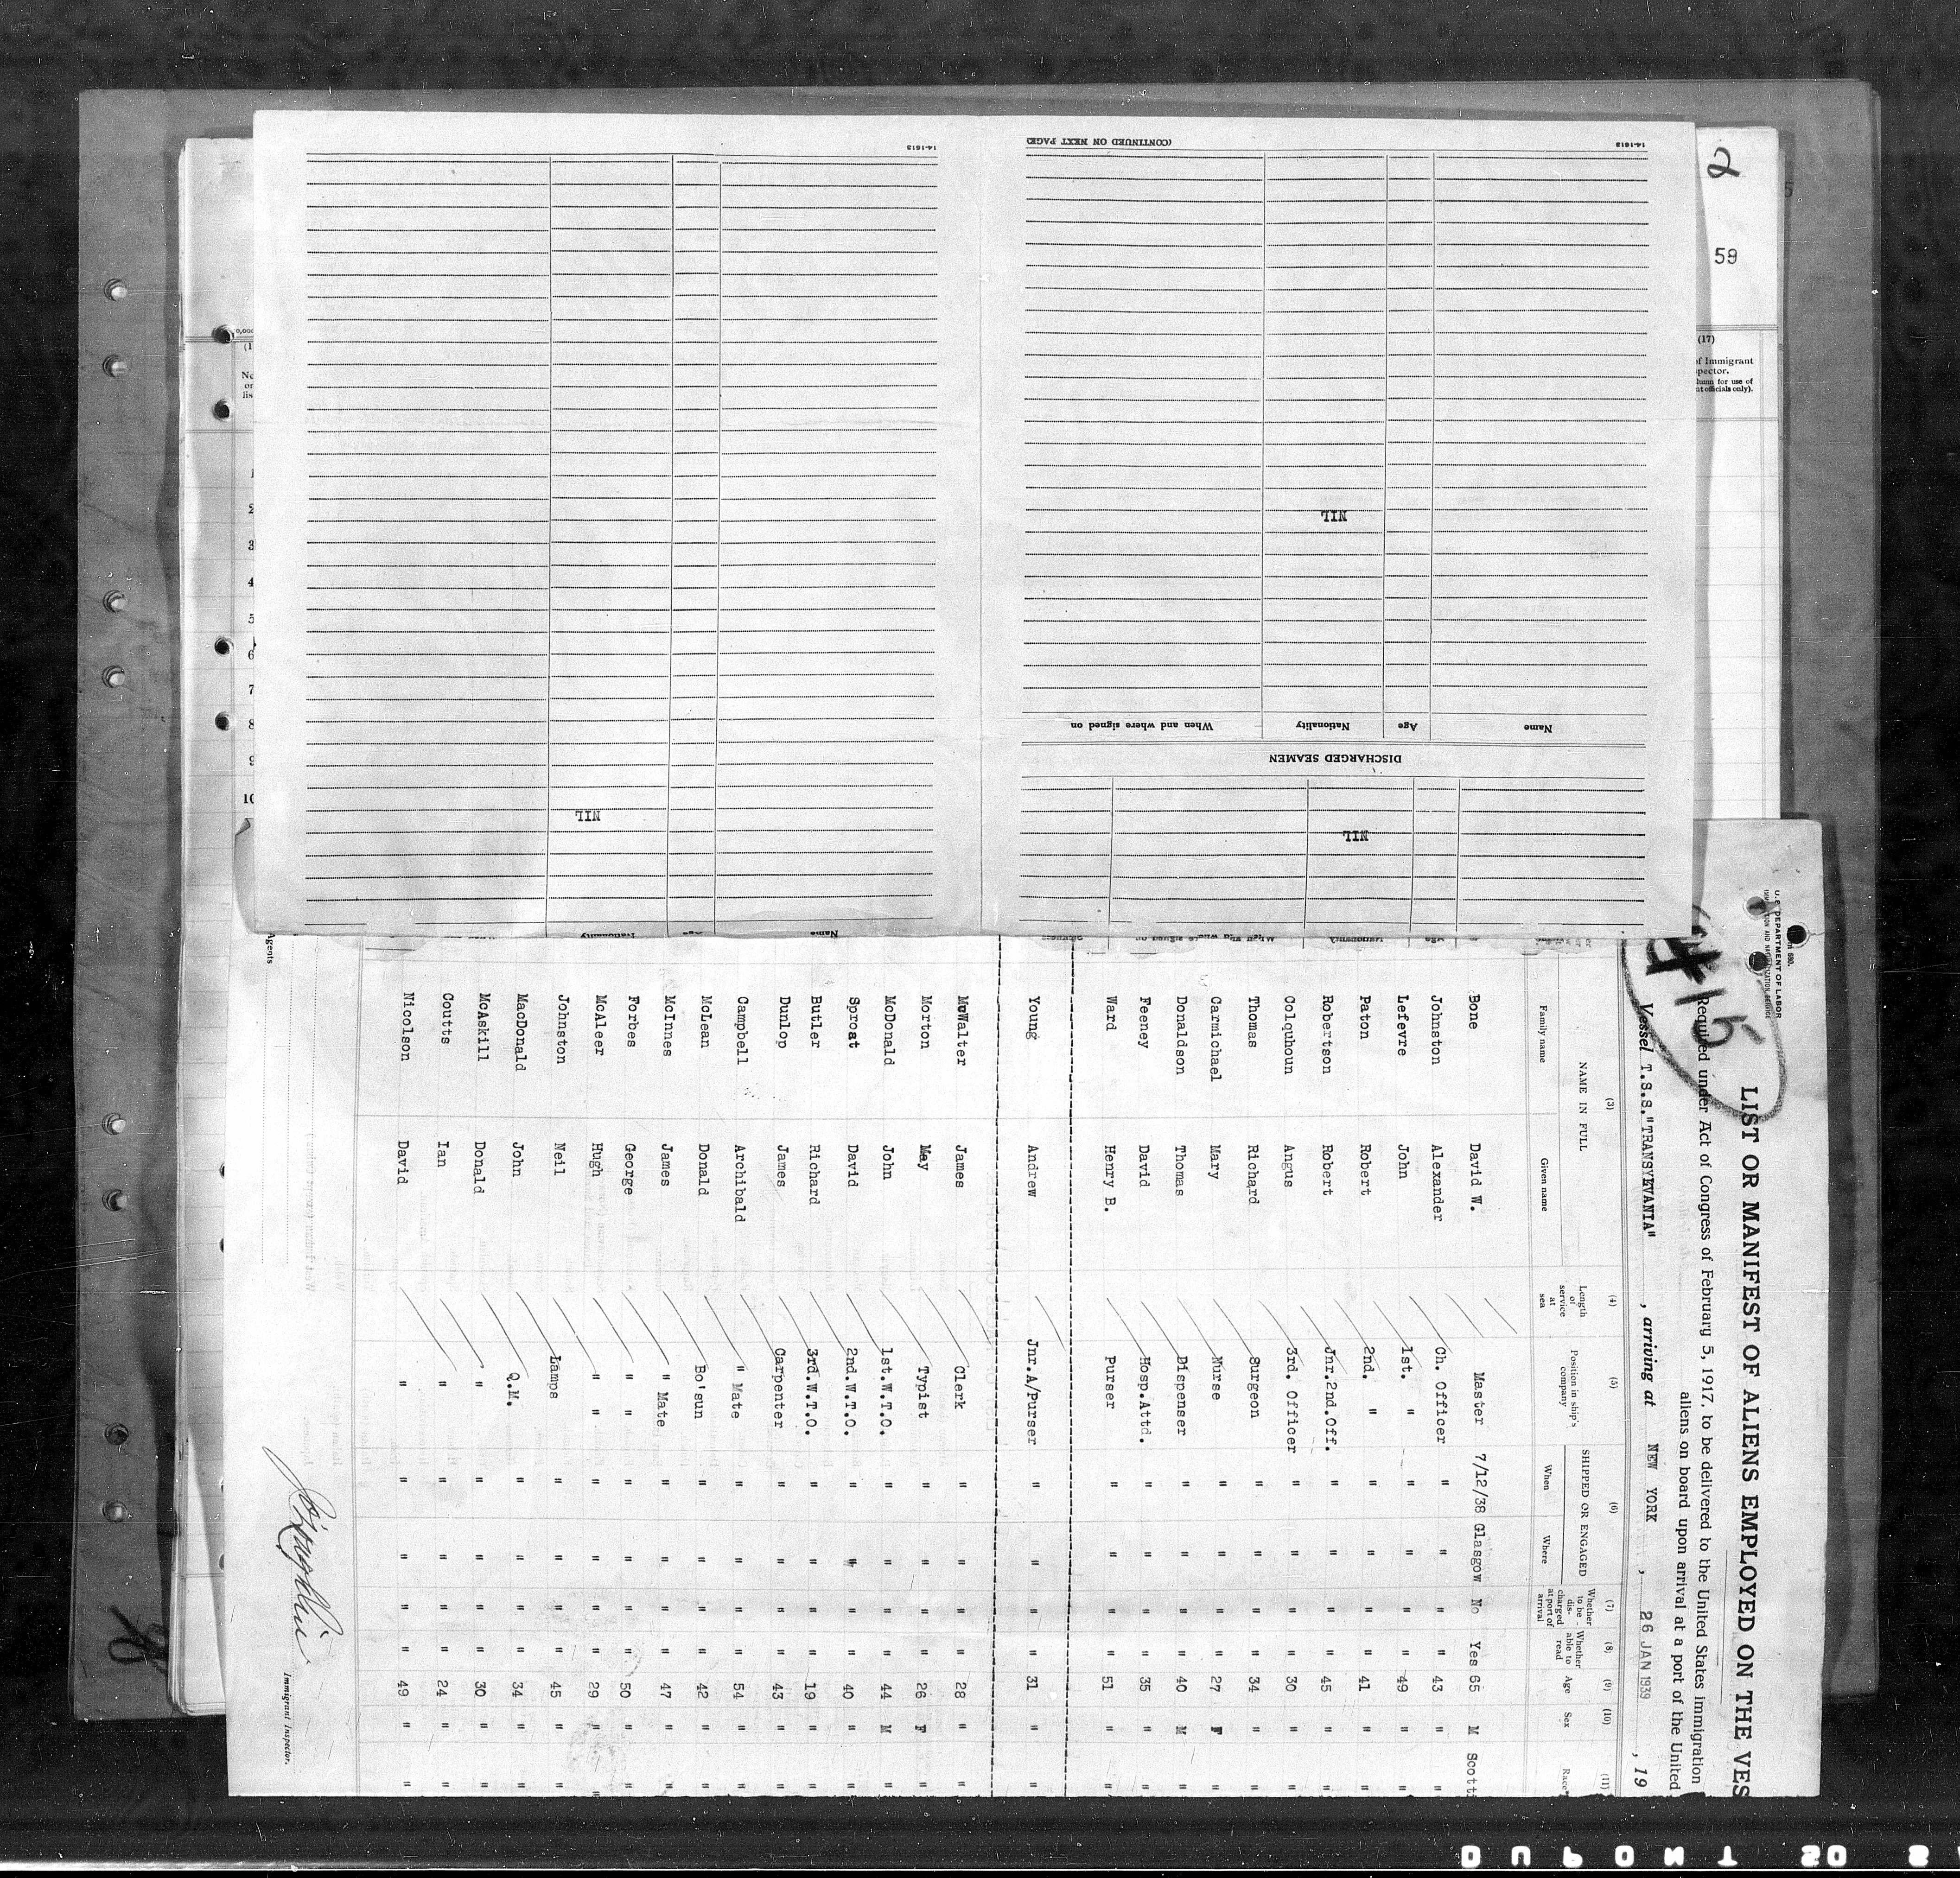 (CONTINUED ON NEXT PAGE)
14-1613
14-1613
NIL
Name
Age
Nationality
When and where signed on
DISCHARGED SEAMEN
NIL
NIL
Name
Nationality
2
59
(17)
of Immigrant
1
2
3
4
5
6
7
8
9
10
U.S. DEPARTMENT OF LABOR
LIST OR MANIFEST OF ALIENS EMPLOYED ON THE VES
Required under Act of Congress of February 5, 1917, to be delivered to the United States immigration
aliens on board upon arrival at a port of the United
Vessel T.S.S. "TRANSYLVANIA" , arriving at NEW YORK , 26 JAN 1939 , 19
(3) (4) (5) (6) (7) (8) (9) (10) (11)
NAME IN FULL
Family name Given name
Length of service at sea
Position in ship's company
SHIPPED OR ENGAGED
When Where
Whether to be discharged at port of arrival
Whether able to read
Age
Sex
Race
Bone David W. Master 7/12/38 Glasgow No Yes 65 M Scott
Johnston Alexander Ch. Officer " " " " 43 " "
Lefevre John 1st. " " " " " 49 " "
Paton Robert 2nd. " " " " " 41 " "
Robertson Robert Jnr.2nd.Off. " " " " 45 " "
Colquhoun Angus 3rd. Officer " " " " 30 " "
Thomas Richard Surgeon " " " " 34 " "
Carmichael Mary Nurse " " " " 27 F "
Donaldson Thomas Dispenser " " " " 40 M "
Feeney David Hosp.Attd. " " " " 35 " "
Ward Henry B. Purser " " " " 51 " "
Young Andrew Jnr.A/Purser " " " " 31 " "
McWalter James Clerk " " " " 28 " "
Morton May Typist " " " " 26 F "
McDonald John 1st.W.T.O. " " " " 44 M "
Sproat David 2nd.W.T.O. " " " " 40 " "
Butler Richard 3rd.W.T.O. " " " " 19 " "
Dunlop James Carpenter " " " " 43 " "
Campbell Archibald " Mate " " " " 54 " "
McLean Donald Bo'sun " " " " 42 " "
McInnes James " Mate " " " " 47 " "
Forbes George " " " " " " 50 " "
McAleer Hugh " " " " " " 29 " "
Johnston Neil Lamps " " " " 45 " "
MacDonald John Q.M. " " " " 34 " "
McAskill Donald " " " " " 30 " "
Coutts Ian " " " " " 24 " "
Nicolson David " " " " " 49 " "
Agents
Immigrant Inspector.